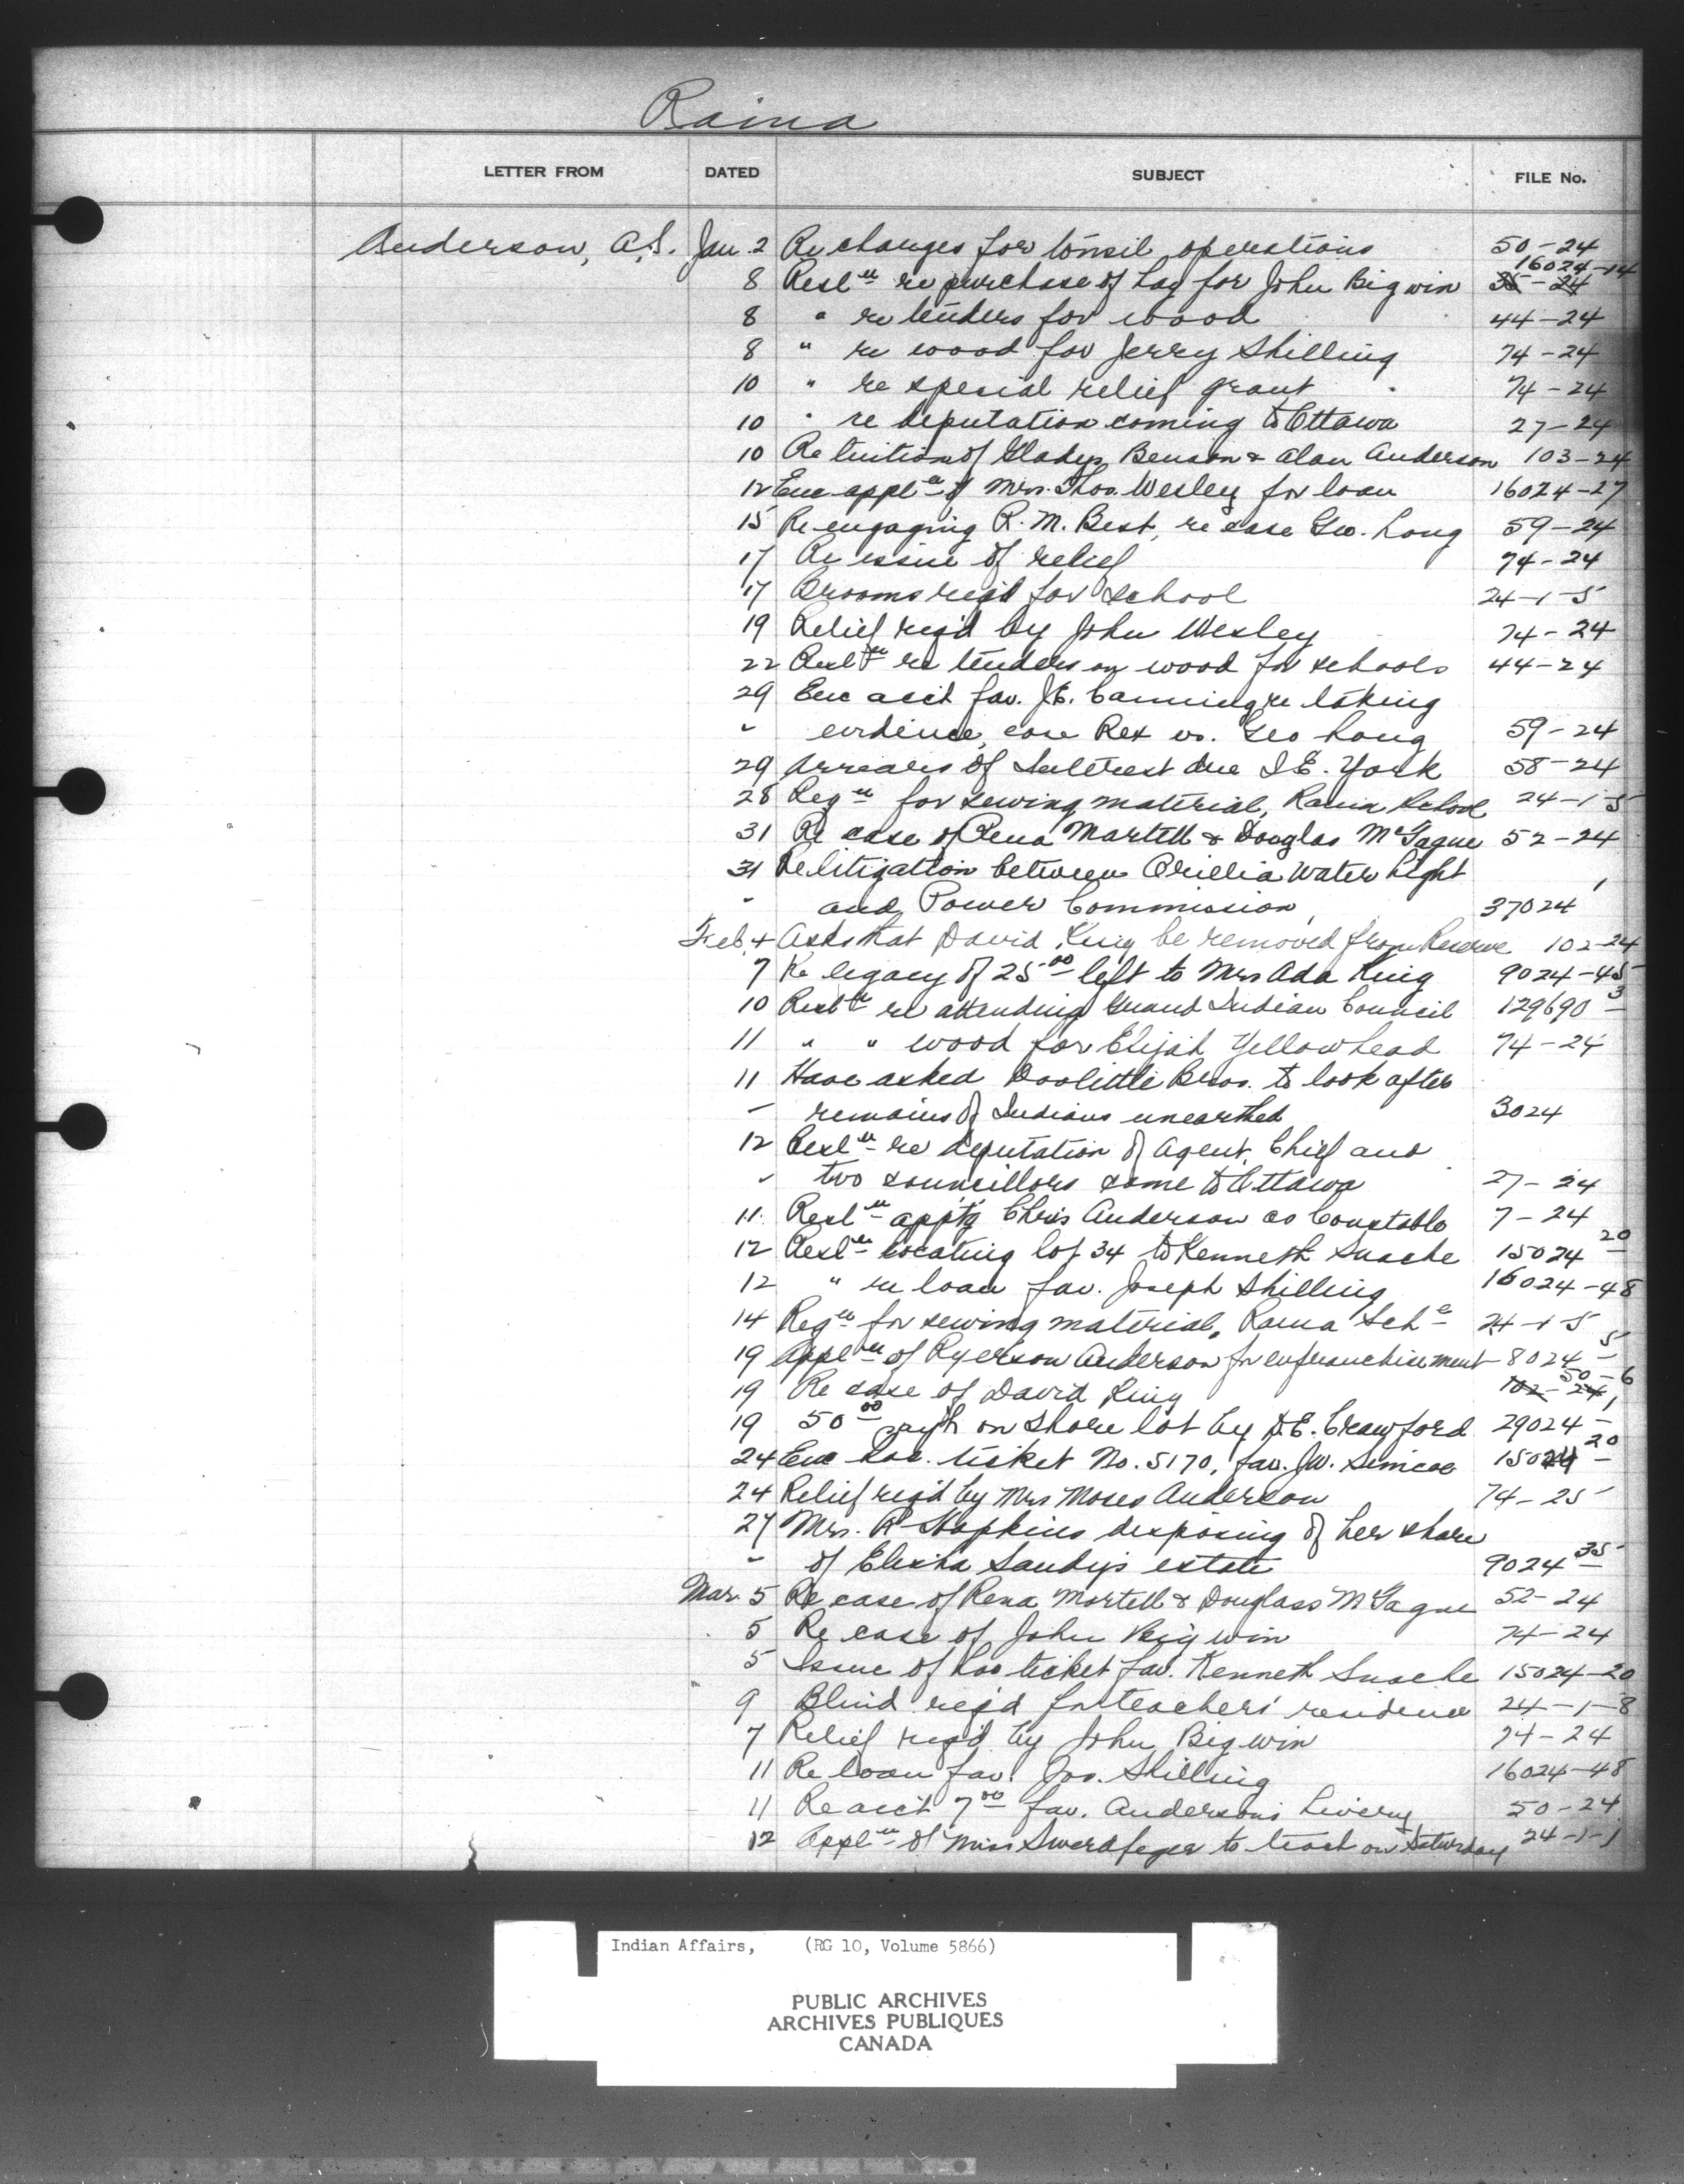 Rama
LETTER FROM DATED SUBJECT FILE No.
Anderson, A.S. Jan. 2 Re charges for tonsil operations 50-24
8 Resl<sup>n</sup> re purchase of hay for John Bigwin 16024-14 35-24
8 " re tenders for wood 44-24
8 " re wood for Jerry Shilling 74-24
10 " re special relief grant 74-24
10 " re deputation coming to Ottawa 27-24
10 Re tuition of Gladys Benson & Alan Anderson 103-24
12 Enc appl<sup>n</sup> of Mrs. Thos. Wesley for loan 16024-27
15 Re engaging R. M. Best, re case Geo. Long 59-24
17 Re issue of relief 74-24
17 Brooms req'd for school 24-1-5
19 Relief req'd by John Wesley 74-24
22 Resl<sup>n</sup> re tenders on wood for schools 44-24
29 Enc acct fav. J.E. Canning re taking
" evidence, case Rex vs. Geo Long 59-24
29 Arrears of Interest due I.E. York 58-24
28 Reg<sup>n</sup> for sewing material, Rama School 24-1-5
31 Re case of Rena Martell & Douglas McGague 52-24
31 Re litigation between Orillia Water Light
" and Power Commission 37024 1
Feb. 4 Asks that David King be removed from Reserve 102-24
7 Re legacy of 25<sup>00</sup> left to Mrs Ada King 9024-45
10 Resl<sup>n</sup> re attending Grand Indian Council 129690-3
11 " " wood for Elijah Yellowhead 74-24
11 Have asked Doolittle Bros. to look after
" remains of Indians unearthed 3024
12 Resl<sup>n</sup> re deputation of Agent, Chief and
" two councillors come to Ottawa 27-24
11 Resl<sup>n</sup> appt'g Chris Anderson as Constable 7-24
12 Resl<sup>n</sup> locating lot 34 to Kenneth Snache 15024-20
12 " re loan fav. Joseph Shilling 16024-48
14 Reg<sup>n</sup> for sewing material, Rama Sch<sup>l</sup> 24-1-5
19 Appl<sup>n</sup> of Ryerson Anderson for enfranchisement 8024-5
19 Re case of David King 50-6 102-24
19 50<sup>00</sup> on shore lot by D.E. Crawford 29024-1
24 Enc Loc. ticket No. 5170, fav. J.W. Simcoe 15024-20
24 Relief req'd by Mrs Moses Anderson 74-25
27 Mrs. R Hopkins disposing of her share
" of Elisha Sandy's estate 9024-35
Mar. 5 Re case of Rena Martell & Douglass McGague 52-24
5 Re case of John Bigwin 74-24
5 Issue of Loc ticket fav. Kenneth Snache 15024-20
9 Blind req'd for teachers' residence 24-1-8
7 Relief req'd by John Bigwin 74-24
11 Re loan fav. Jos. Shilling 16024-48
11 Re acct 7<sup>00</sup> fav. Anderson's Livery 50-24
12 Appl<sup>n</sup> of Miss Swerdfeger to teach on Saturday 24-1-1
Indian Affairs, (RG 10, Volume 5866)
PUBLIC ARCHIVES
ARCHIVES PUBLIQUES
CANADA